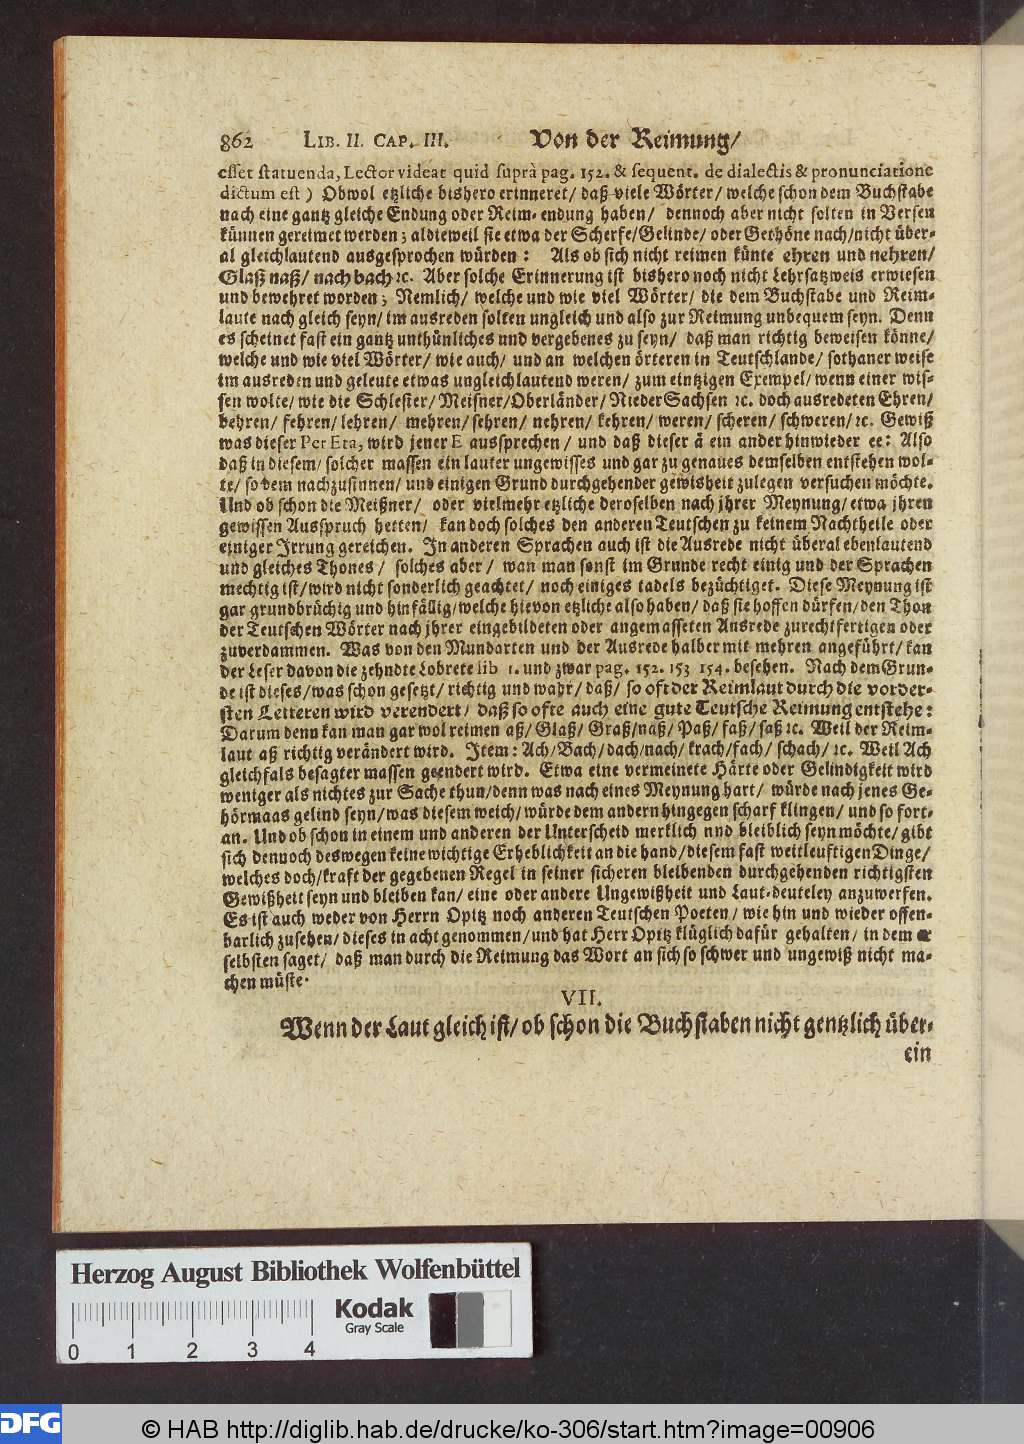 862 LIB. II. CAP. III. Von der Reimung/
esset statuenda, Lector videat quid suprà pag. 152. & sequent. de dialectis & pronunciatione
dictum est ) Obwol etzliche bishero erinneret/ daß viele Wörter/ welche schon dem Buchstabe
nach eine gantz gleiche Endung oder Reim-endung haben/ dennoch aber nicht solten in Versen
künnen gereimet werden; aldieweil sie etwa der Scherfe/Gelinde/ oder Gethöne nach/nicht über-
al gleichlautend ausgesprochen würden: Als ob sich nicht reimen künte ehren und nehren/
Glaß naß/ nach bach ꝛc. Aber solche Erinnerung ist bishero noch nicht Lehrsatzweis erwiesen
und bewehret worden; Nemlich/ welche und wie viel Wörter/ die dem Buchstabe und Reim-
laute nach gleich seyn/ im ausreden solten ungleich und also zur Reimung unbequem seyn. Denn
es scheinet fast ein gantz unthünliches und vergebenes zu seyn/ daß man richtig beweisen könne/
welche und wie viel Wörter/ wie auch/ und an welchen örteren in Teutschlande/ sothaner weise
im ausreden und geleute etwas ungleichlautend weren/ zum eintzigen Exempel/ wenn einer wis-
sen wolte/ wie die Schlesier/ Meisner/Oberländer/ NiederSachsen ꝛc. doch ausredeten Ehren/
behren/ fehren/ lehren/ mehren/ sehren/ nehren/ kehren/ weren/ scheren/ schweren/ ꝛc. Gewiß
was dieser Per Eta, wird jener E aussprechen/ und daß dieser ä ein ander hinwieder ee: Also
daß in diesem/ solcher massen ein lauter ungewisses und gar zu genaues demselben entstehen wol-
te/ so dem nachzusinnen/ und einigen Grund durchgehender gewisheit zulegen versuchen möchte.
Und ob schon die Meißner/ oder vielmehr etzliche deroselben nach jhrer Meynung/ etwa jhren
gewissen Ausspruch hetten/ kan doch solches den anderen Teutschen zu keinem Nachtheile oder
ejniger Jrrung gereichen. Jn anderen Sprachen auch ist die Ausrede nicht überal ebenlautend
und gleiches Thones/ solches aber/ wan man sonst im Grunde recht einig und der Sprachen
mechtig ist/wird nicht sonderlich geachtet/ noch einiges tadels bezüchtiget. Diese Meynung ist
gar grundbrüchig und hinfällig/welche hievon etzliche also haben/ daß sie hoffen dürfen/den Thon
der Teutschen Wörter nach jhrer eingebildeten oder angemasseten Ausrede zurechtfertigen oder
zuverdammen. Was von den Mundarten und der Ausrede halber mit mehren angeführt/ kan
der Leser davon die zehndte Lobrete lib 1. und zwar pag. 152. 153 154. besehen. Nach dem Grun-
de ist dieses/was schon gesetzt/ richtig und wahr/ daß/ so oft der Reimlaut durch die vorder-
sten Letteren wird verendert/ daß so ofte auch eine gute Teutsche Reimung entstehe:
Darum denn kan man gar wol reimen aß/ Glaß/ Graß/ naß/ Paß/ faß/ saß ꝛc. Weil der Reim-
laut aß richtig verändert wird. Jtem: Ach/ Bach/ dach/ nach/ krach/ fach/ schach/ ꝛc. Weil Ach
gleichfals besagter massen geendert wird. Etwa eine vermeinete Härte oder Gelindigkeit wird
weniger als nichtes zur Sache thun/denn was nach eines Meynung hart/ würde nach jenes Ge-
hörmaas gelind seyn/ was diesem weich/ würde dem andern hingegen scharf klingen/ und so fort-
an. Und ob schon in einem und anderen der Unterscheid merklich und bleiblich seyn möchte/ gibt
sich dennoch deswegen keine wichtige Erheblichkeit an die hand/ diesem fast weitleuftigen Dinge/
welches doch/kraft der gegebenen Regel in seiner sicheren bleibenden durchgehenden richtigsten
Gewißheit seyn und bleiben kan/ eine oder andere Ungewißheit und Laut-deuteley anzuwerfen.
Es ist auch weder von Herrn Opitz noch anderen Teutschen Poeten/ wie hin und wieder offen-
barlich zusehen/ dieses in acht genommen/ und hat Herr Opitz klüglich dafür gehalten/ in dem er
selbsten saget/ daß man durch die Reimung das Wort an sich so schwer und ungewiß nicht ma-
chen müste.
VII.
Wenn der Laut gleich ist/ ob schon die Buchstaben nicht gentzlich über-
ein
Herzog August Bibliothek Wolfenbüttel
Kodak
Gray Scale
0 1 2 3 4
DFG © HAB http://diglib.hab.de/drucke/ko-306/start.htm?image=00906